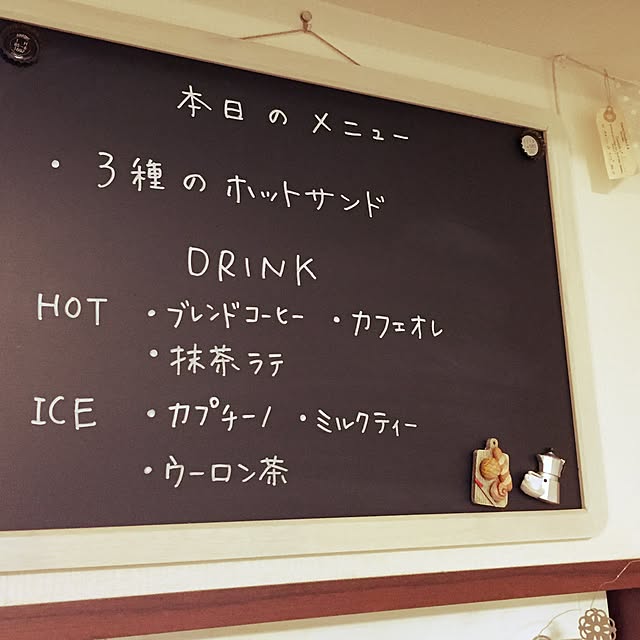 本日のメニュー
・3種のホットサンド
DRINK
HOT ・ブレンドコーヒー ・カフェオレ
・抹茶ラテ
ICE ・カプチーノ ・ミルクティー
・ウーロン茶